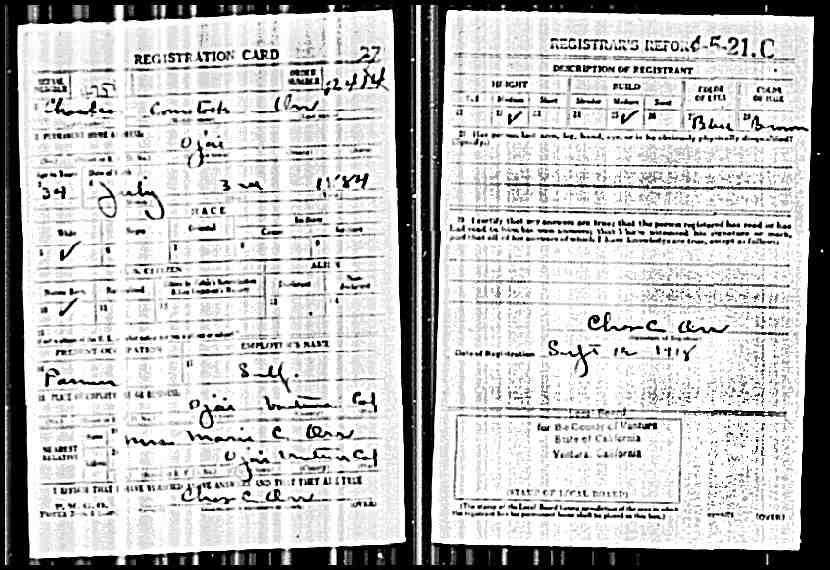 REGISTRATION CARD 27
SERIAL NUMBER 475 ORDER NUMBER
Charles Comstock Orr
PERMANENT HOME ADDRESS:
Ojai
Age in Years Date of Birth
34 July 3 1884
RACE
White Negro Oriental Indian
✓
U. S. CITIZEN ALIEN
Native Born Naturalized Declarant
10 ✓ 11
PRESENT OCCUPATION EMPLOYER'S NAME
Farmer Self.
Ojai Ventura Cal
NEAREST RELATIVE Name Mrs Marie C. Orr
Address Ojai Ventura Cal
I AFFIRM THAT I HAVE VERIFIED ABOVE ANSWERS AND THAT THEY ARE TRUE
P. M. G. O.
Chas C. Orr
(OVER)
REGISTRAR'S REPORT 4-5-21. C
DESCRIPTION OF REGISTRANT
HEIGHT BUILD COLOR OF EYES COLOR OF HAIR
Tall Medium Short Slender Medium Stout
21 22 ✓ 23 24 25 ✓ 26 27 Blue 28 Brown
29 Has person lost arm, leg, hand, eye, or is he obviously physically disqualified?
(Specify.)
30 I certify that my answers are true; that the person registered has read or has
had read to him his own answers; that I have witnessed his signature or mark,
and that all of his answers of which I have knowledge are true, except as follows:
Chas C. Orr
Date of Registration Sept 12 1918
Local Board
for the County of Ventura
State of California
Ventura, California
(STAMP OF LOCAL BOARD)
(The stamp of the Local Board having jurisdiction of the area in which
the registrant has his permanent home shall be placed in this box.)
(OVER)